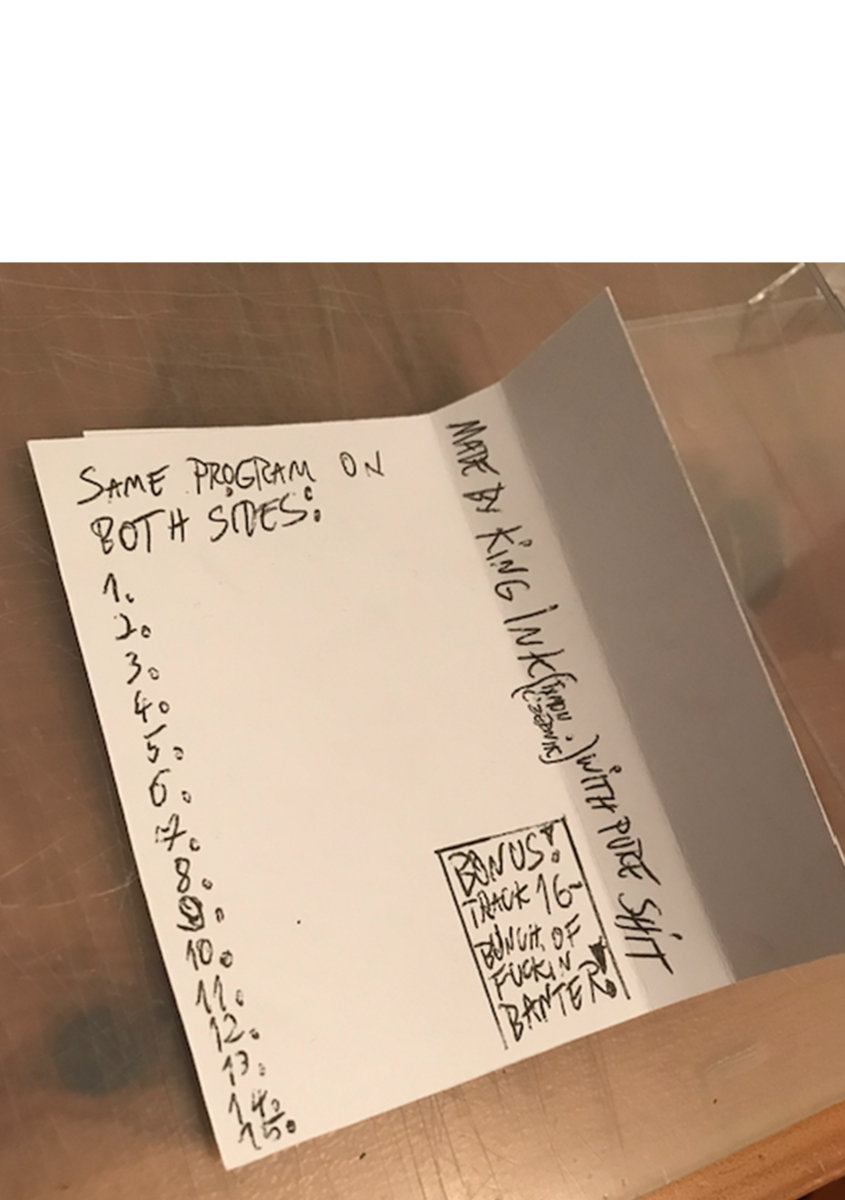 SAME PROGRAM ON
BOTH SIDES:
1.
2.
3.
4.
5.
6.
7.
8.
9.
10.
11.
12.
13.
14.
15.
MADE BY KING INK ( ) WITH PURE SHIT
BONUS!
TRACK 16-
BUNCH OF
FUCKIN
BANTER!